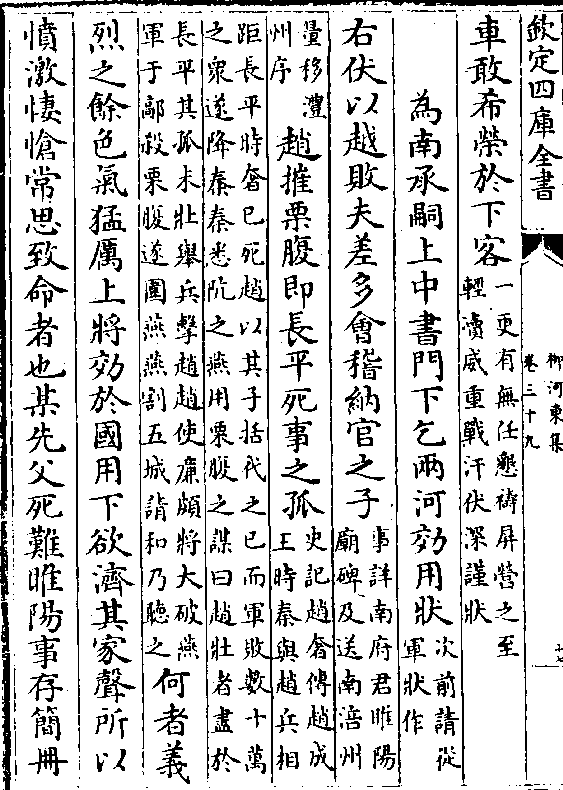 欽定四庫全書
柳河東集
卷三十九
十七
車敢希榮於下客
一更有無任懇禱屏營之至
輕瀆威重戰汗伏深謹狀
為南承嗣上中書門下乞兩河効用狀
次前請從
軍狀作
右伏以越敗夫差多會稽納官之子
事詳南府君睢陽
廟碑及送南涪州
量移澧
州序
趙摧栗腹即長平死事之孤
史記趙奢傳趙成
王時秦與趙兵相
距長平時奢已死趙以其子括代之已而軍敗數十萬
之衆遂降秦秦悉阬之燕用栗腹之謀曰趙壯者盡於
長平其孤未壯舉兵擊趙趙使廉頗將大破燕
軍于鄗殺栗腹遂圍燕燕割五城請和乃聽之
何者義
烈之餘色氣猛厲上將効於國用下欲濟其家聲所以
憤激悽愴常思致命者也某先父死難睢陽事存簡冊